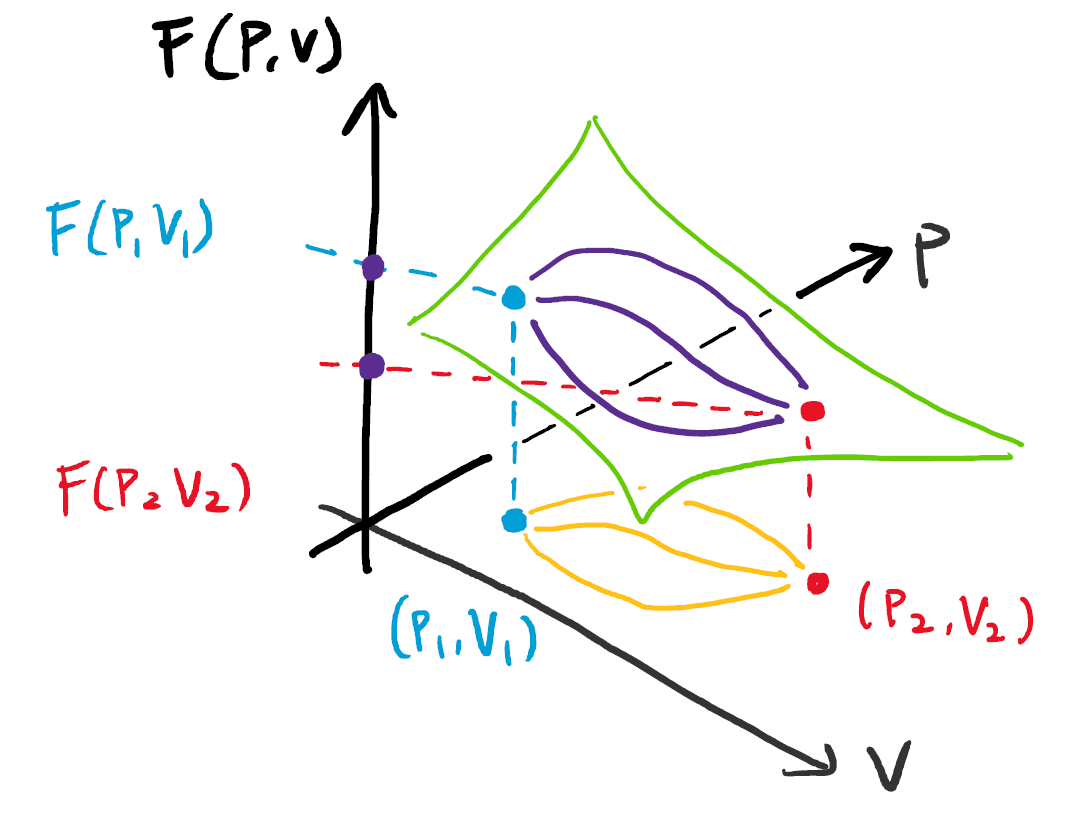 F(P,V)
F(P₁V₁)
P
F(P₂V₂)
(P₁,V₁)
(P₂,V₂)
V